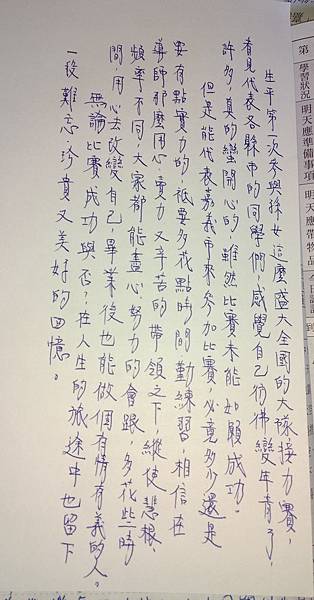 生平第一次參與孫女這麼盛大全國的大隊接力賽,
看見代表各縣市的同學們,感覺自己彷彿變年青了,
許多,真的蠻開心的,雖然比賽未能如願成功。
但是能代表嘉義市來參加比賽,必竟多少還是
要有點實力的,祇要多花點時間勤練習,相信在
導師那麼用心、實力又辛苦的帶領之下,縱使慧根、
頻率不同,大家都能盡心努力的會跟,多花些時
間,用心去改變自己,畢業後也能做個有情有義的人。
無論比賽成功與否?在人生的旅途中也留下
一段難忘、珍貴又美好的回憶。
第
學習狀況
明天應準備事項
明天應帶物品
到